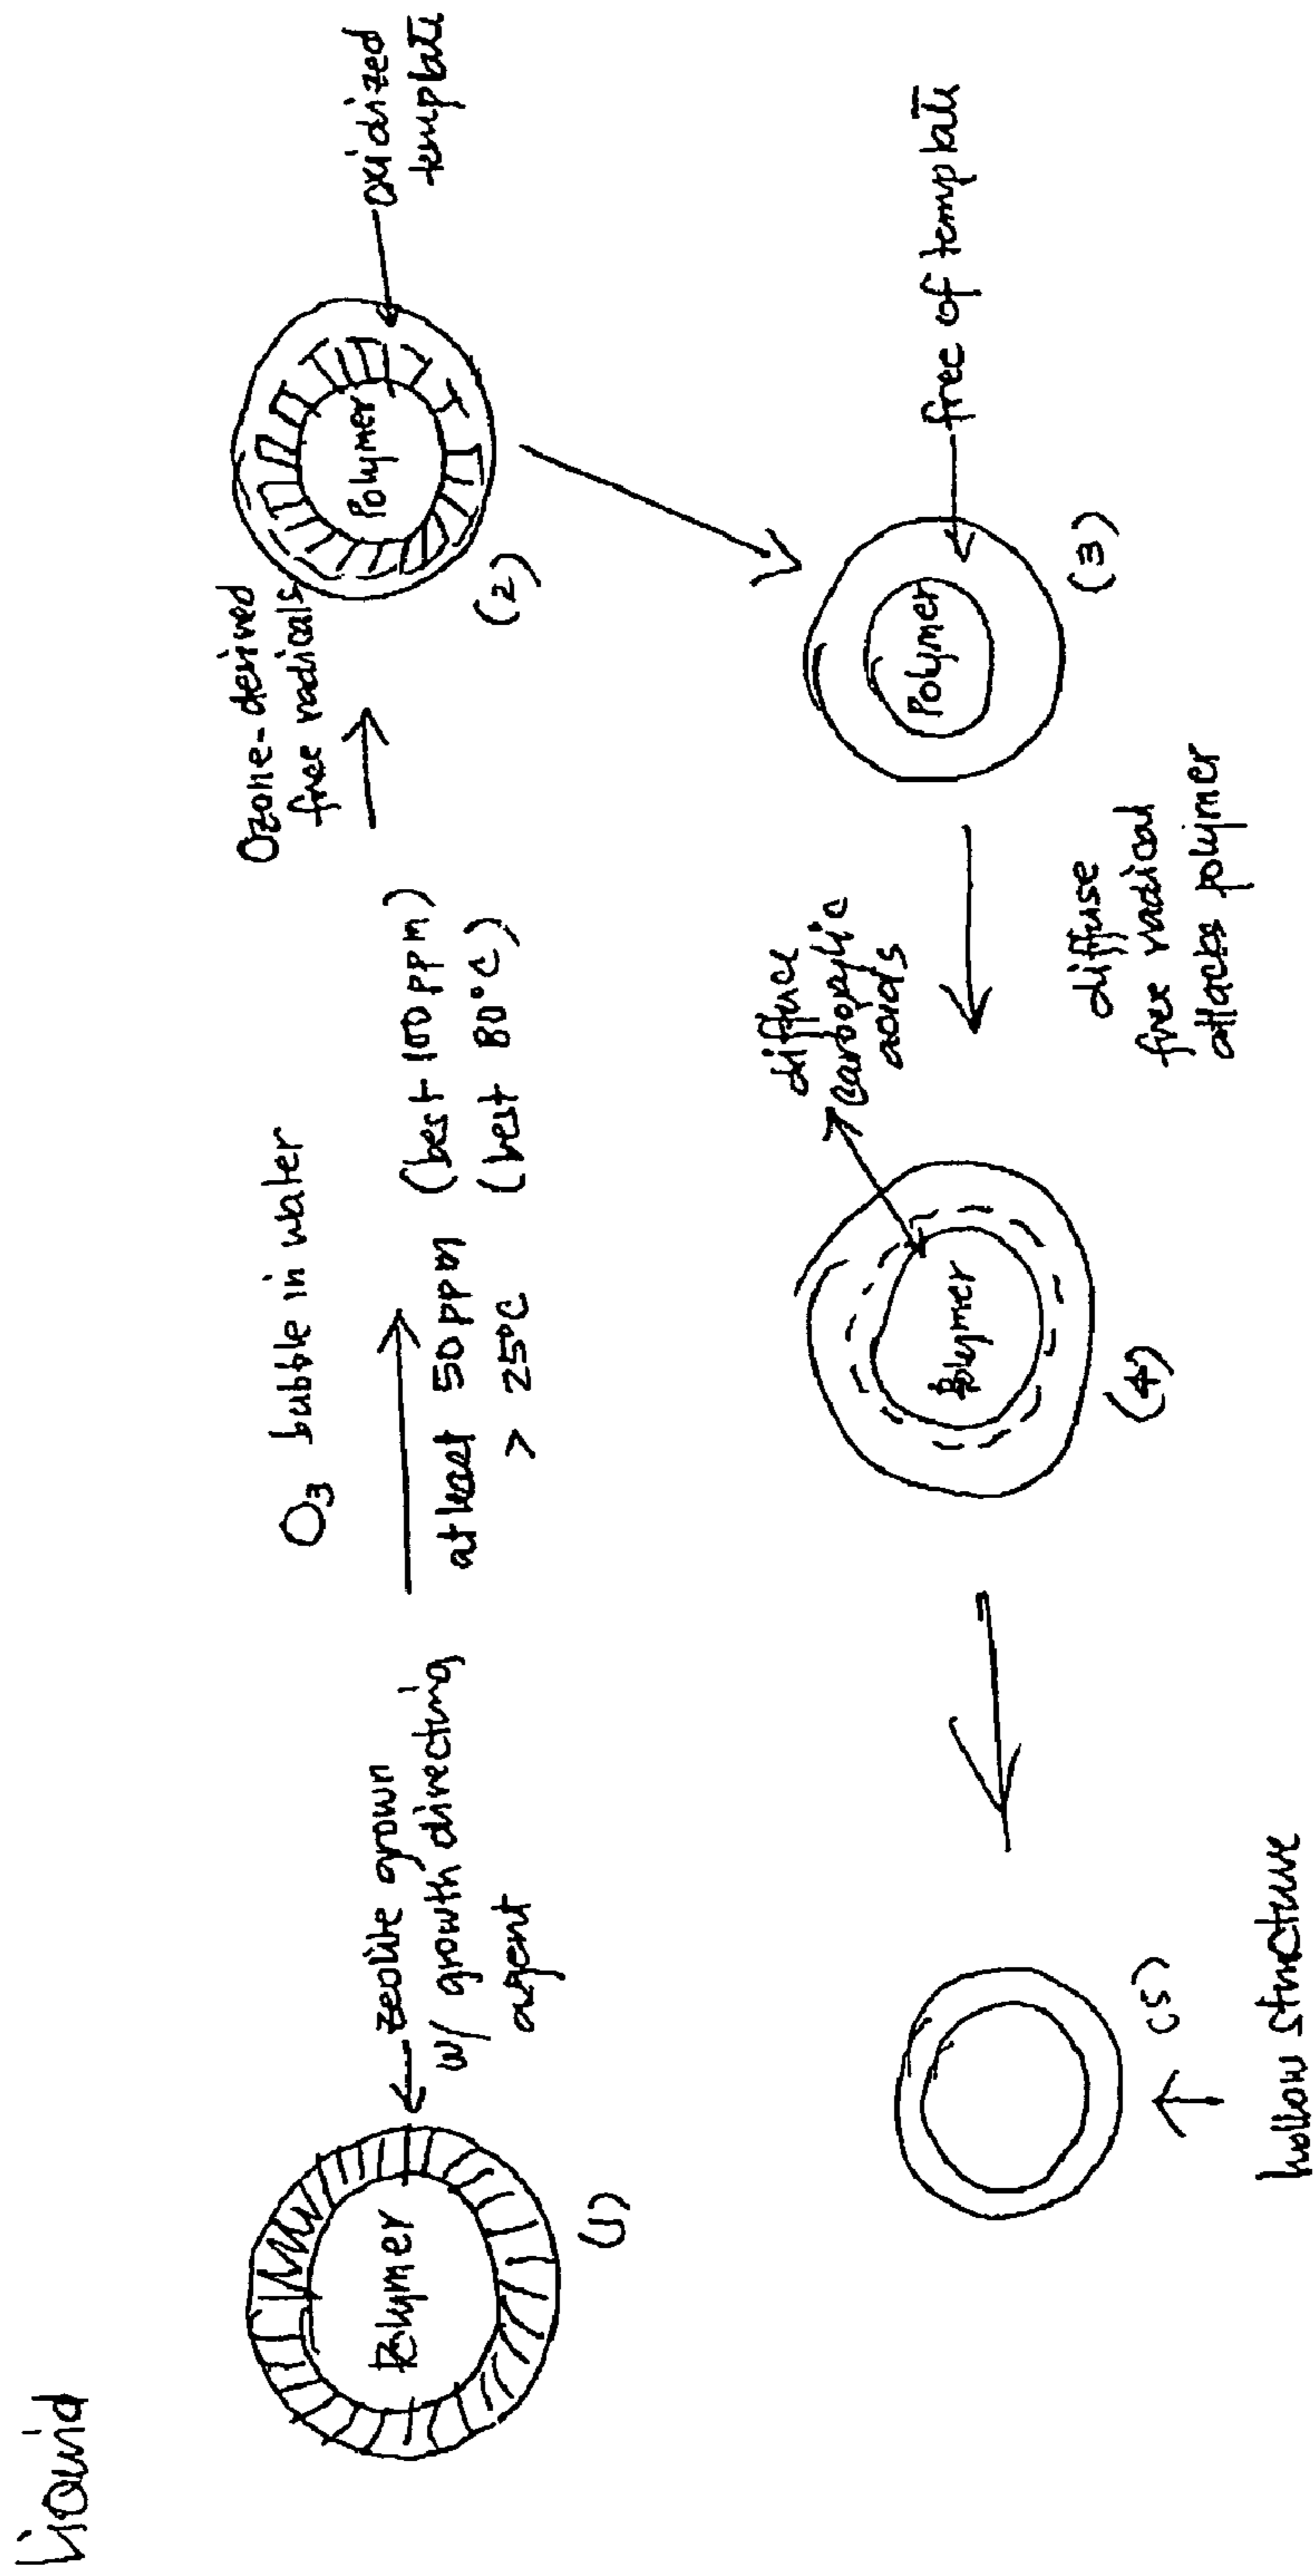 Liquid
Polymer
(1)
zeolite grown
w/ growth directing
agent
O3 bubble in water
at least 50 ppm (best 100 ppm)
> 25°C (best 80°C)
Ozone-derived
free radicals
Polymer
(2)
oxidized
template
Polymer
(3)
free of template
diffuse
free radical
attacks polymer
diffuse
carboxylic
acids
Polymer
(4)
(5)
hollow structure